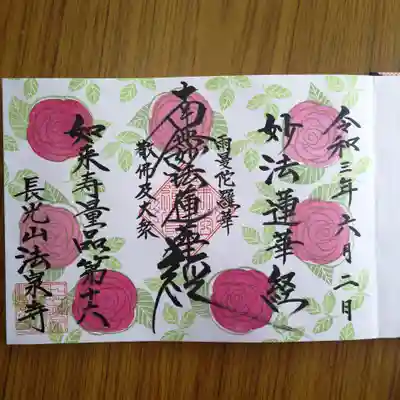 令和三年六月二日
妙法蓮華経
雨曼陀羅華
散佛及大衆
南無妙法蓮華経
如来寿量品第十六
長光山法泉寺